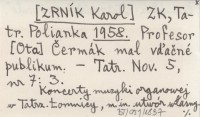 [ZRNÍK Karol] ZK, Ta-
tr. Polianka 1958. Profesor
[Ota] Čermák mal vďačné
publikum. – Tatr. Nov. 5,
nr 7: 3.
Koncerty muzyki organowej
w Tatrz. Łomnicy, m.in. utwór własny